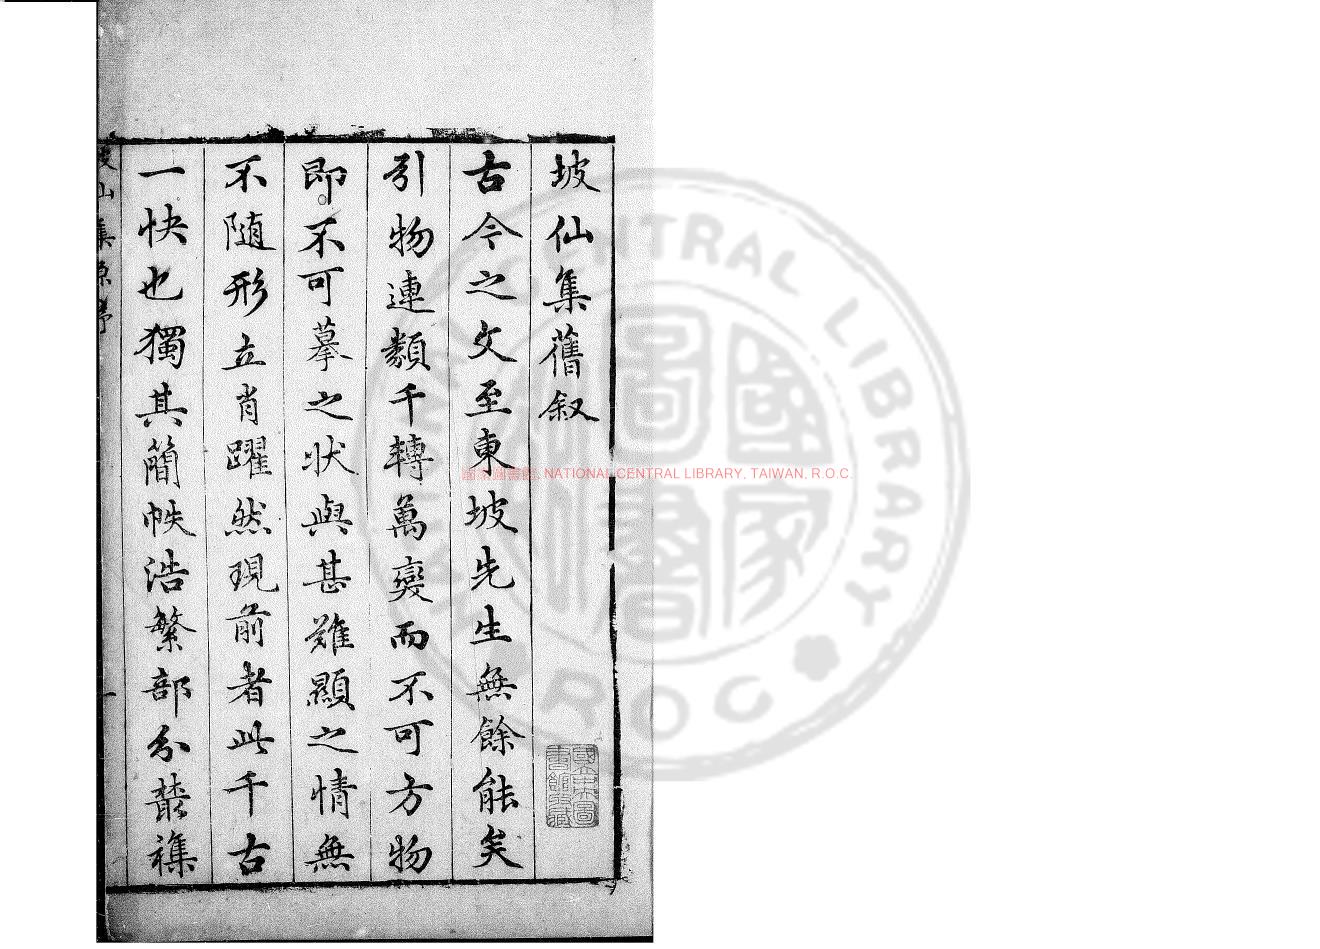 坡仙集舊叙
古今之文至東坡先生無餘能矣
引物連類千轉萬變而不可方物
即不可摹之狀與甚難顯之情無
不隨形立肖躍然現前者此千古
一快也獨其簡帙浩繁部分叢襍
坡仙集原序
一
國立中央圖書館收藏
國家圖書館, NATIONAL CENTRAL LIBRARY, TAIWAN, R.O.C.
國家圖書館
NATIONAL CENTRAL LIBRARY
ROC